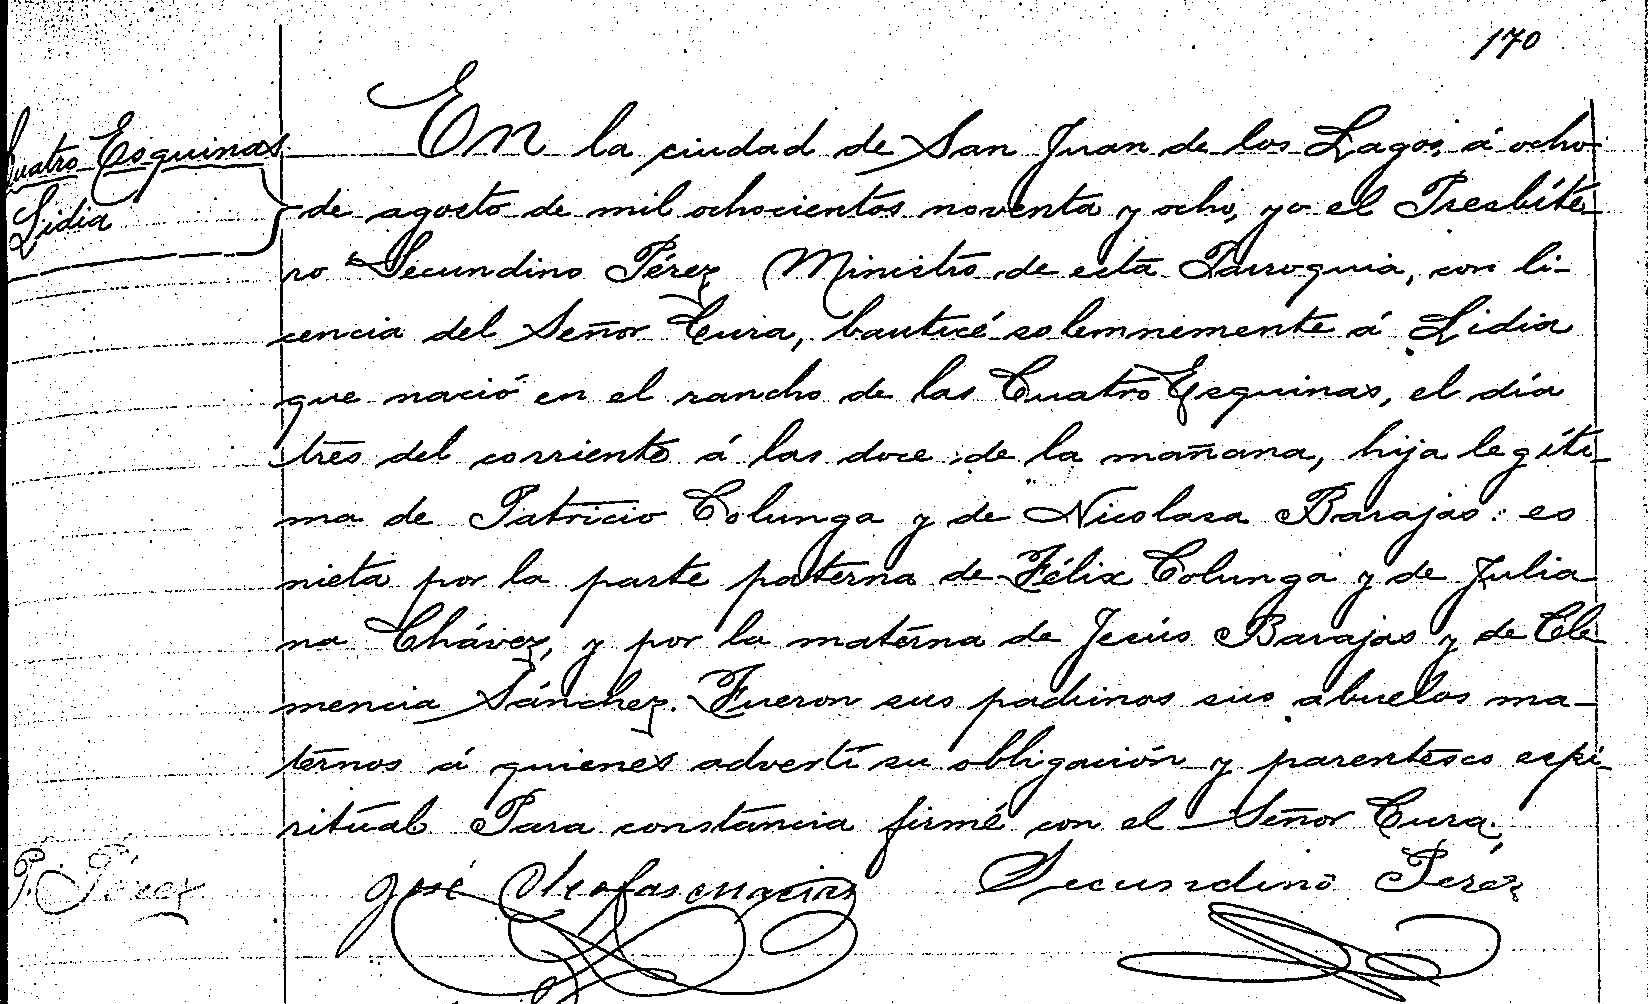 170
Cuatro Esquinas
Lidia
En la ciudad de San Juan de los Lagos, á ocho
de agosto de mil ochocientos noventa y ocho, yo el Presbíte-
ro Secundino Pérez Ministro de esta Parroquia, con li-
cencia del Señor Cura, bauticé solemnemente á Lidia
que nació en el rancho de las Cuatro Esquinas, el día
tres del corriente á las doce de la mañana, hija legíti-
ma de Patricio Colunga y de Nicolasa Barajas: es
nieta por la parte paterna de Félix Colunga y de Julia-
na Chávez, y por la materna de Jesús Barajas y de Cle-
mencia Sánchez. Fueron sus padrinos sus abuelos ma-
ternos á quienes advertí su obligación y parentesco espi-
ritual Para constancia firmé con el Señor Cura,
P. Pérez
José Cleofas Macias Secundino Pérez